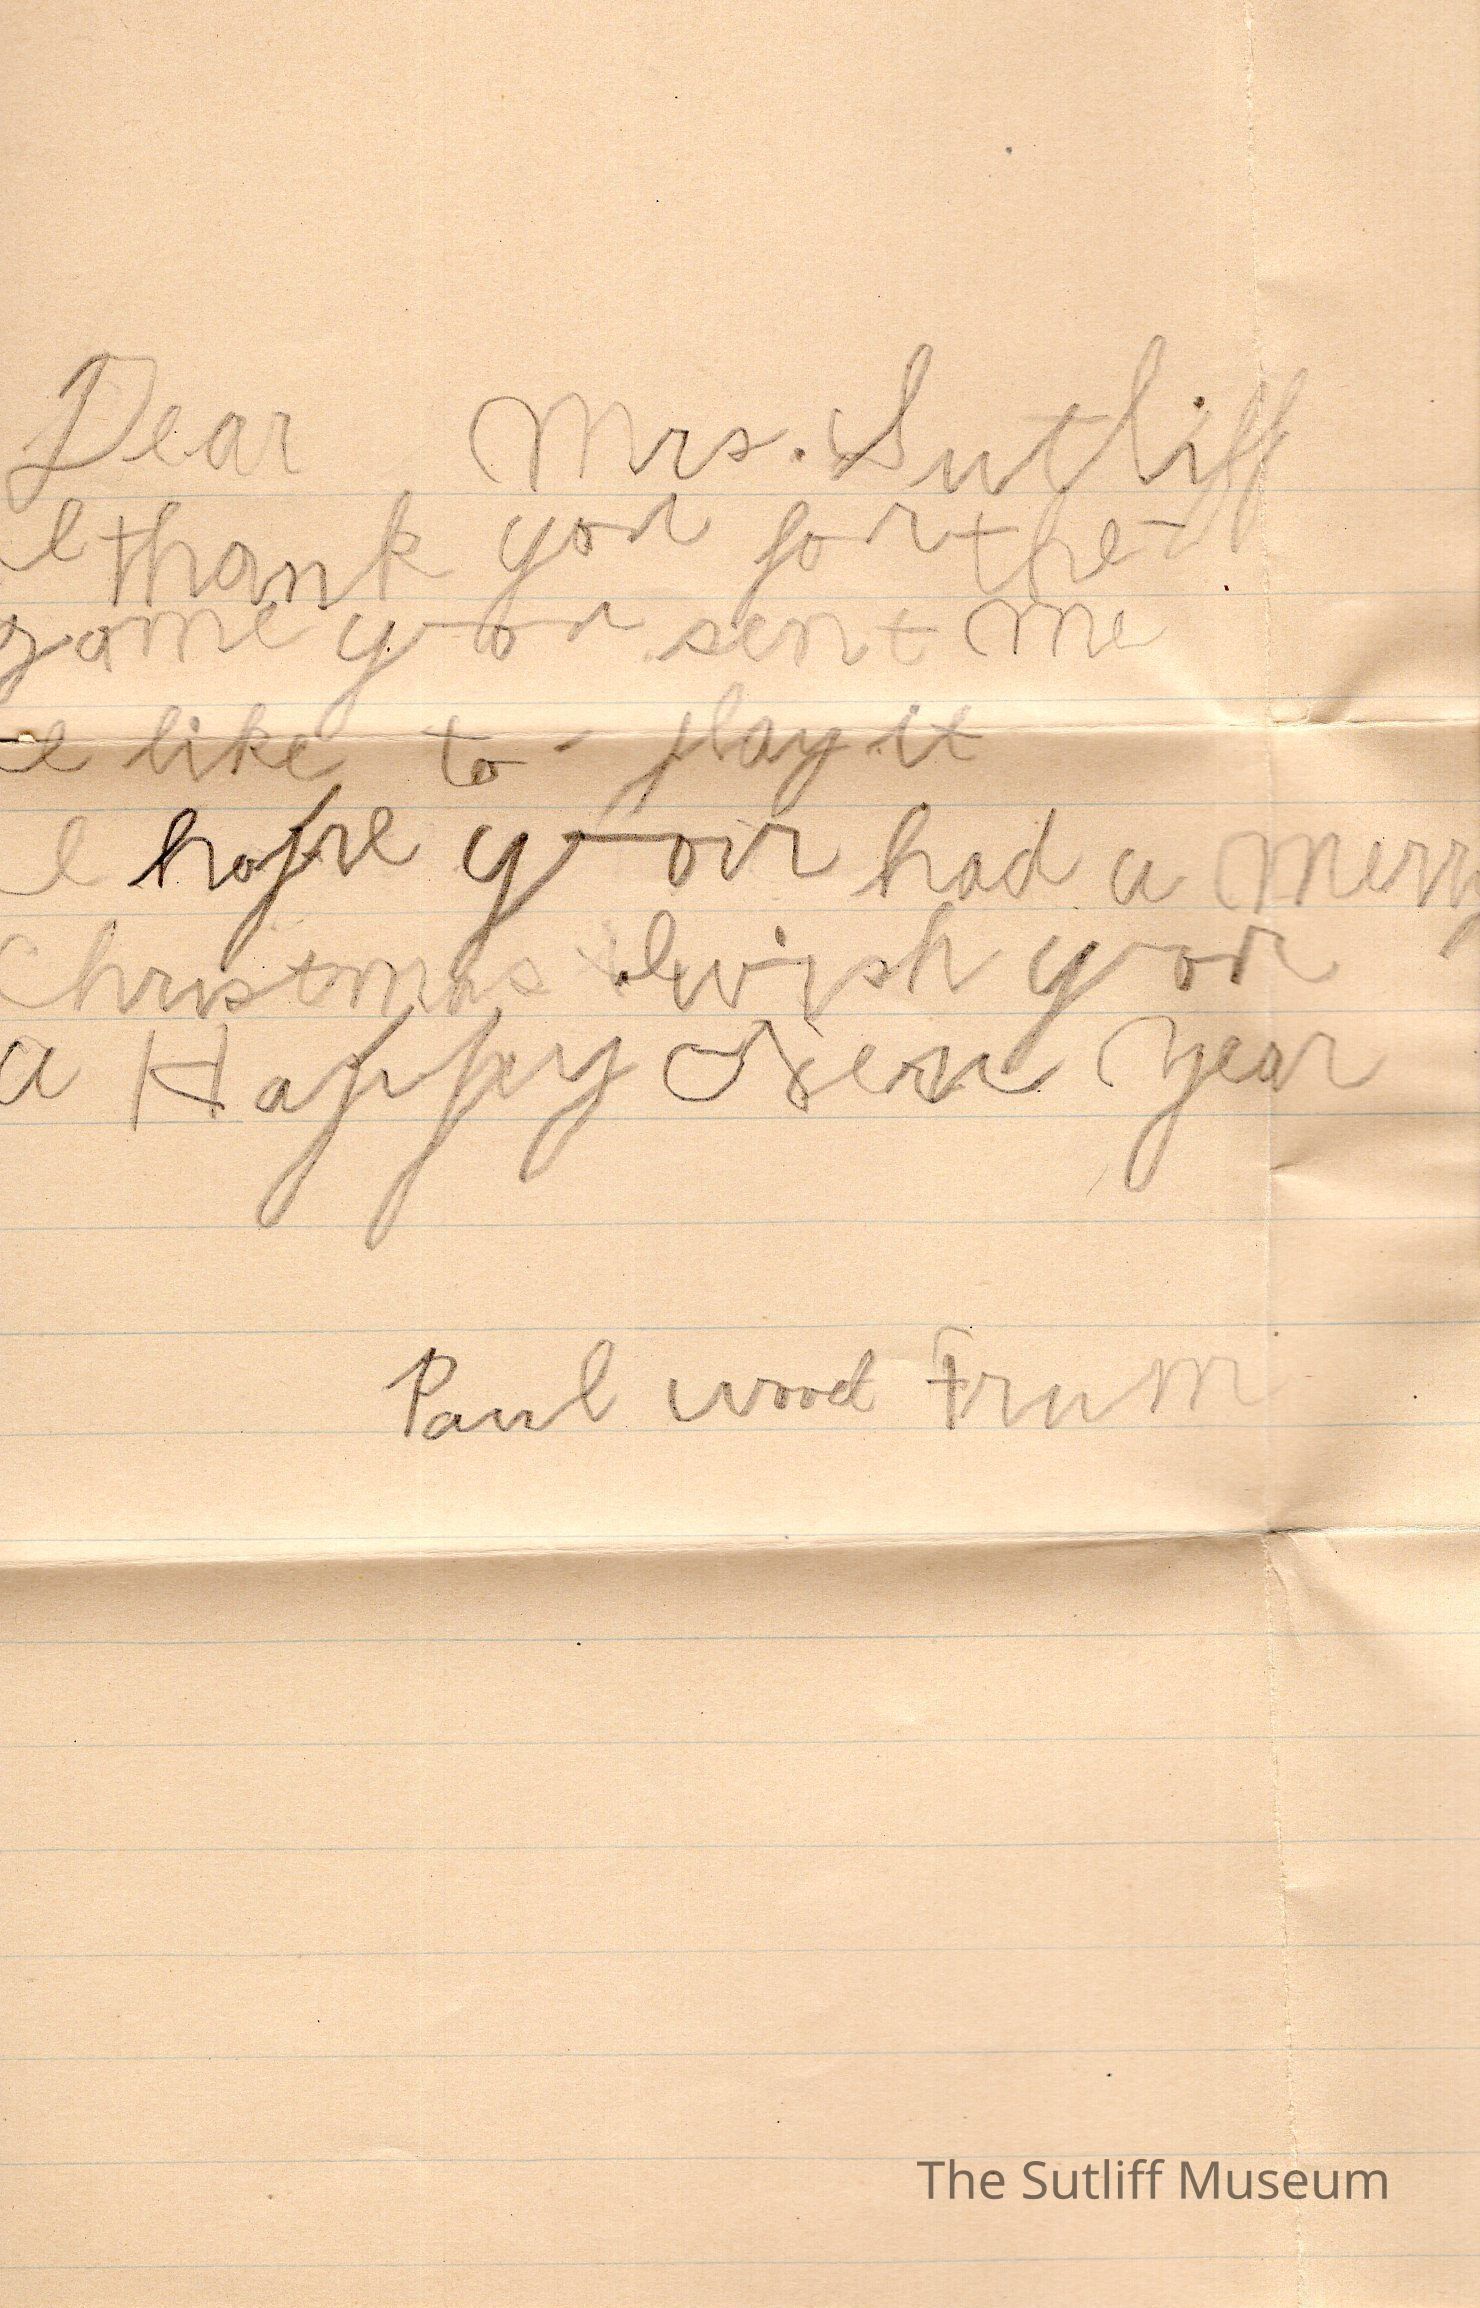 Dear Mrs. Sutliff
I thank you for the
game you sent me
I like to play it
I hope you had a Merry
Christmas I wish you
a Happy New Year
Paul Wood Frum
The Sutliff Museum